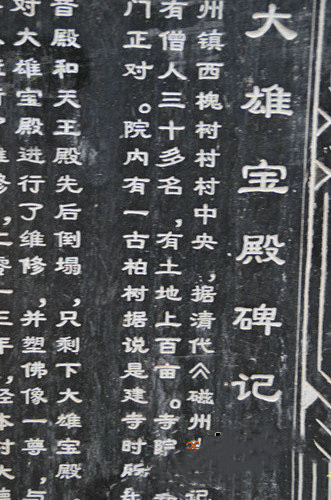 大雄宝殿碑记
州镇西槐树村村中央，据清代《磁州
有僧人三十多名，有土地上百亩。寺院
门正对。院内有一古柏树据说是建寺时所
音殿和天王殿先后倒塌，只剩下大雄宝殿。
对大雄宝殿进行了维修，并塑佛像一尊，与
修，二零一三年，经本村大